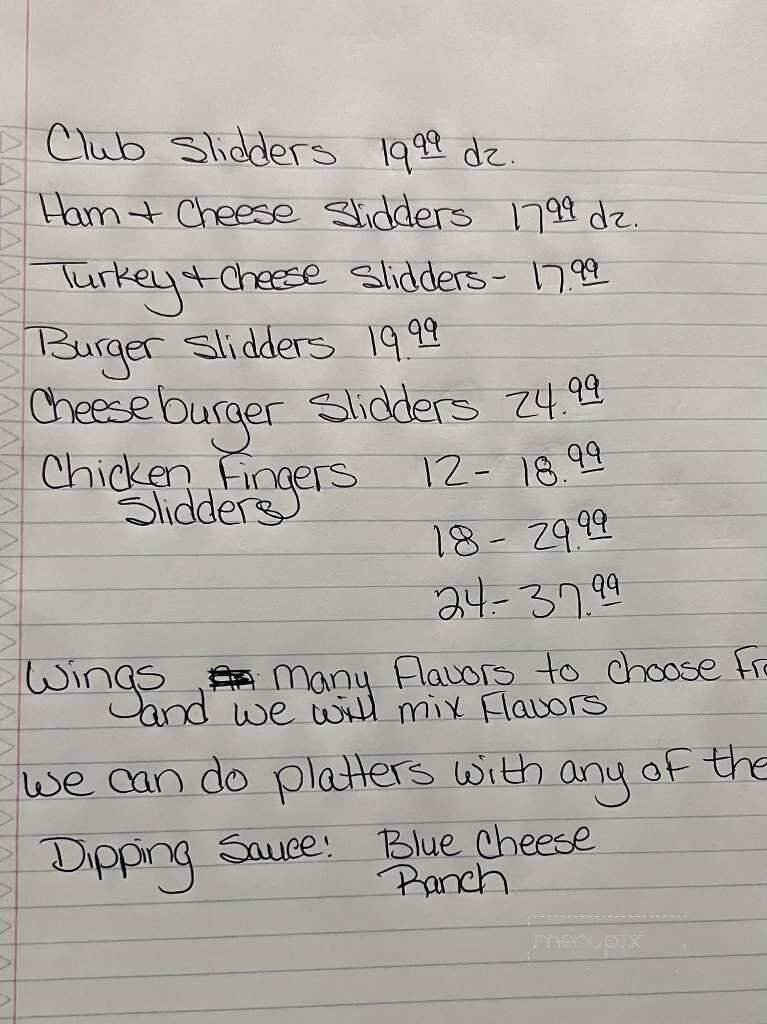 Club Slidders 19.99 dz.
Ham + Cheese Slidders 17.99 dz.
Turkey + cheese Slidders - 17.99
Burger Slidders 19.99
Cheeseburger Slidders 24.99
Chicken Fingers 12 - 18.99
Slidders
18 - 29.99
24 - 37.99
Wings, many Flavors to choose
and we will mix Flavors
we can do platters with any of the
Dipping Sauce: Blue Cheese
Ranch
menupix